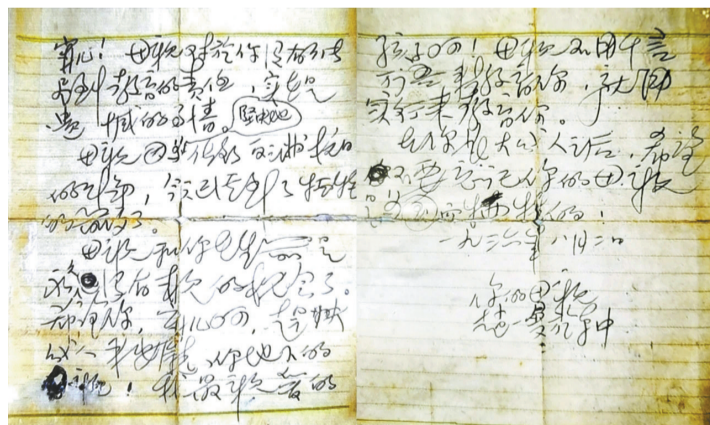 寧儿!母親对於你没有能
尽到教育的责任,实在是
遗憾的事情。坚决地
母親因为做了反满抗日
的斗争,今天已经到了牺牲
的前夕了。
母親和你在生前是
永久没有再見的机会了。
希望你,宁儿啊!赶快
成人,来安慰你地下的
母親!我最親爱的
孩子啊!母親不用千言
万语来教育你,就用
实行来教育你。
在你长大成人之后,希望
不要忘记你的母親
是为国而牺牲的!
一九三六年八月二日
你的母親
赵一曼於车中